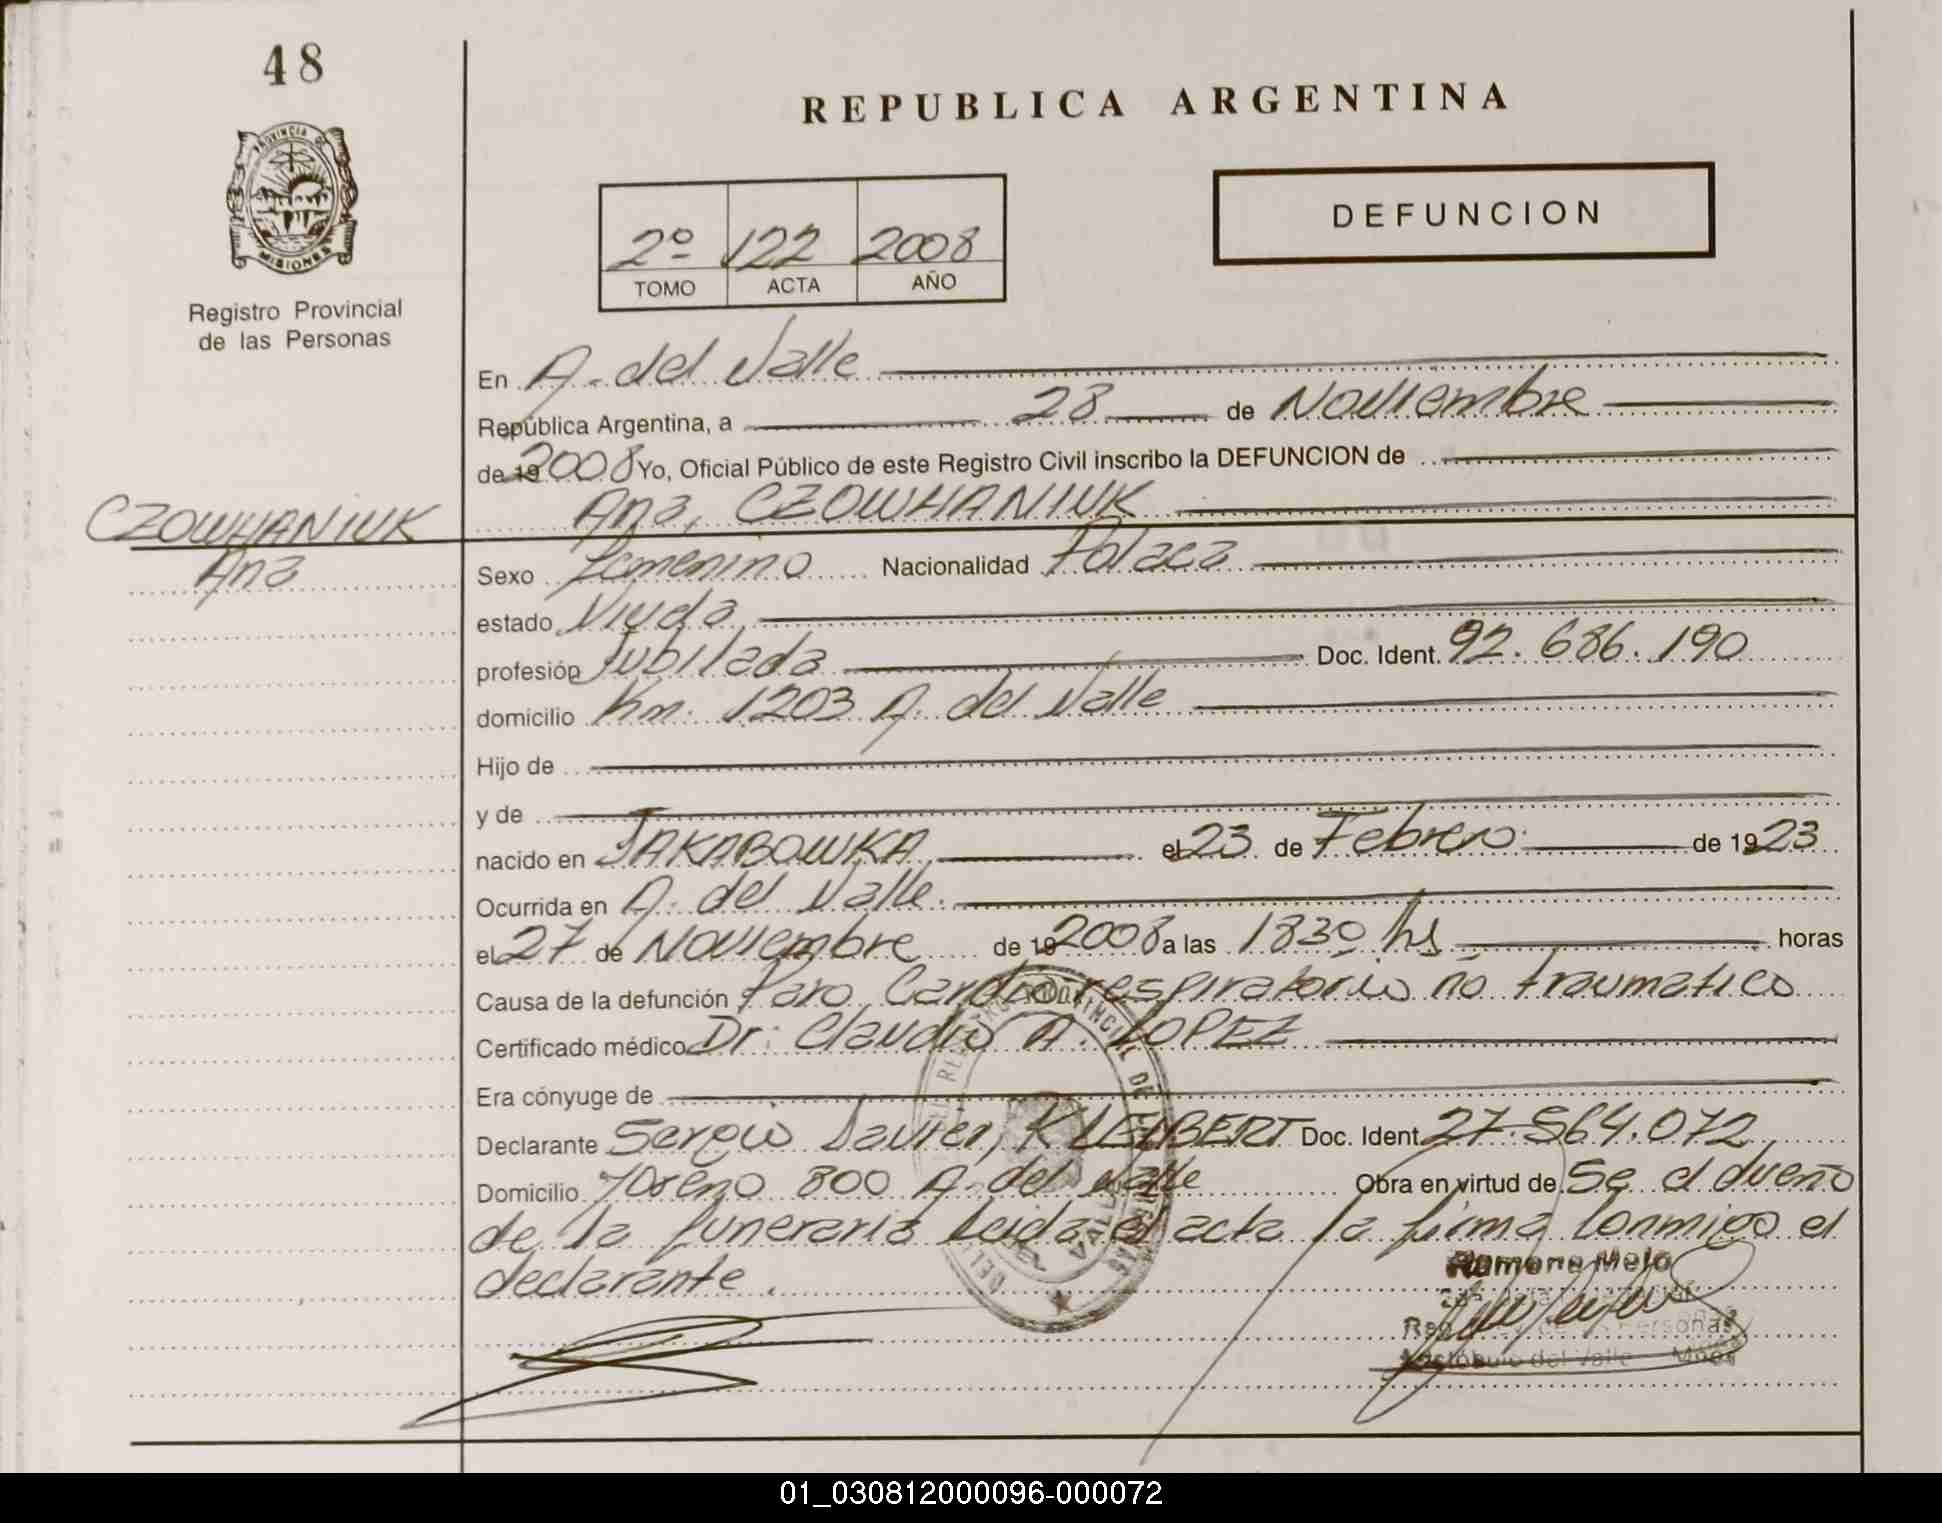 48
REPUBLICA ARGENTINA
PROVINCIA DE
MISIONES
Registro Provincial
de las Personas
DEFUNCION
2º 122 2008
TOMO ACTA AÑO
En A. del Valle
República Argentina, a 28 de Noviembre
de 19 2008 Yo, Oficial Público de este Registro Civil inscribo la DEFUNCION de
CZOWHANIUK
Ana
Ana, CZOWHANIUK
Sexo Femenino Nacionalidad Polaca
estado Viuda
profesión Jubilada Doc. Ident. 92.686.190
domicilio Km. 1203 A. del Valle
Hijo de
y de
nacido en JAKABOWKA el 23 de Febrero de 1923
Ocurrida en A. del Valle.
el 27 de Noviembre de 19 2008 a las 1830 hs horas
Causa de la defunción Paro Cardiorespiratorio no traumatico
Certificado médico Dr. Claudio A. LOPEZ
Era cónyuge de
Declarante Sergio Javier, KLEIBERT Doc. Ident 27.564.072
Domicilio Moreno 800 A. del Valle Obra en virtud de Se el dueño
de la funeraria Leida el acta la firma conmigo el
declarante.
Ramona Melo
Aristóbulo del Valle Mnes
01_030812000096-000072